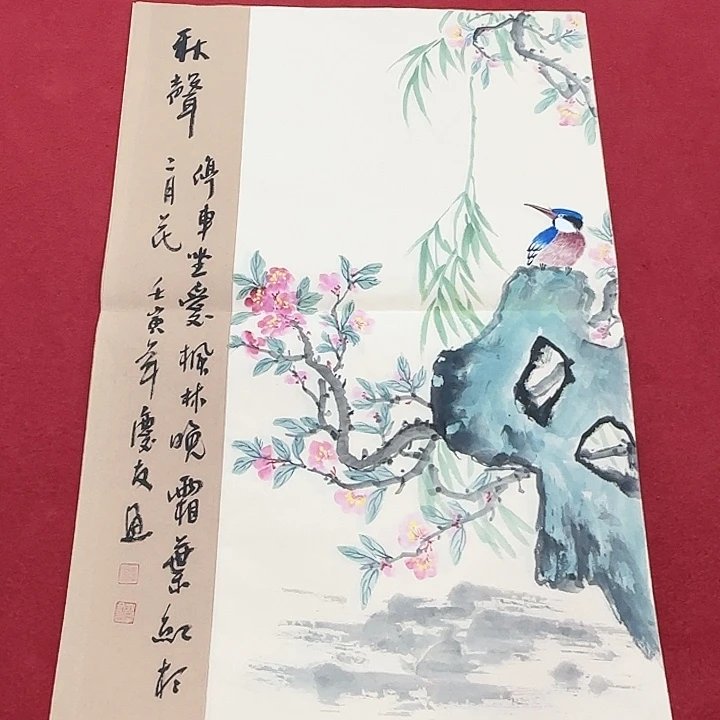 秋聲
停車坐愛楓林晚霜葉紅於
二月花
壬寅年
慶友